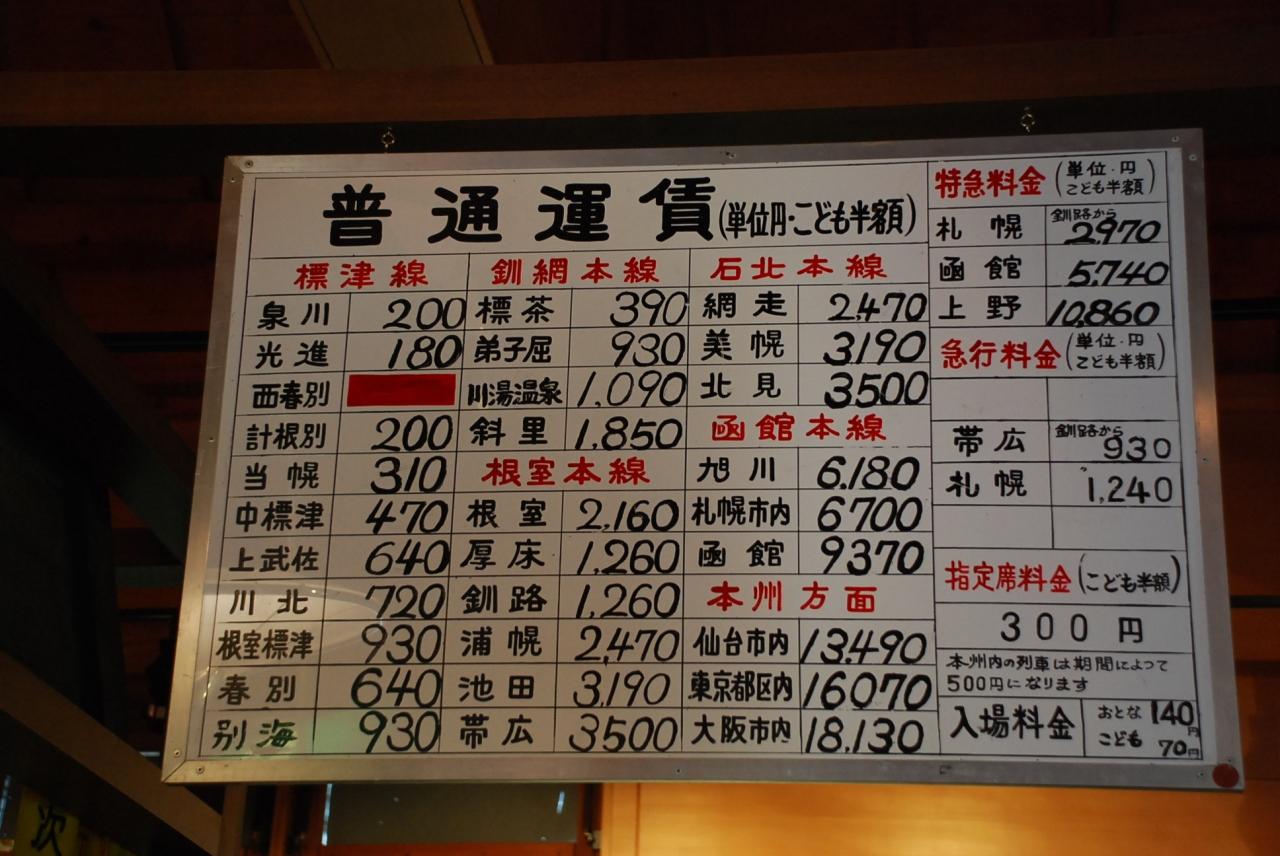 普通運賃(単位円・こども半額)
標津線
泉川 200
光進 180
西春別
計根別 200
当幌 310
中標津 470
上武佐 640
川北 720
根室標津 930
春別 640
別海 930
釧網本線
標茶 390
弟子屈 930
川湯温泉 1,090
斜里 1,850
根室本線
根室 2,160
厚床 1,260
釧路 1,260
浦幌 2,470
池田 3,190
帯広 3500
石北本線
網走 2,470
美幌 3190
北見 3500
函館本線
旭川 6.180
札幌市内 6700
函館 9370
本州方面
仙台市内 13,490
東京都区内 16070
大阪市内 18,130
特急料金(単位・円
こども半額)
釧路から
札幌 2,970
函館 5,740
上野 10,860
急行料金(単位・円
こども半額)
釧路から
帯広 930
札幌 1,240
指定席料金(こども半額)
300円
本州内の列車は期間によって
500円になります
入場料金
おとな 140円
こども 70円
次